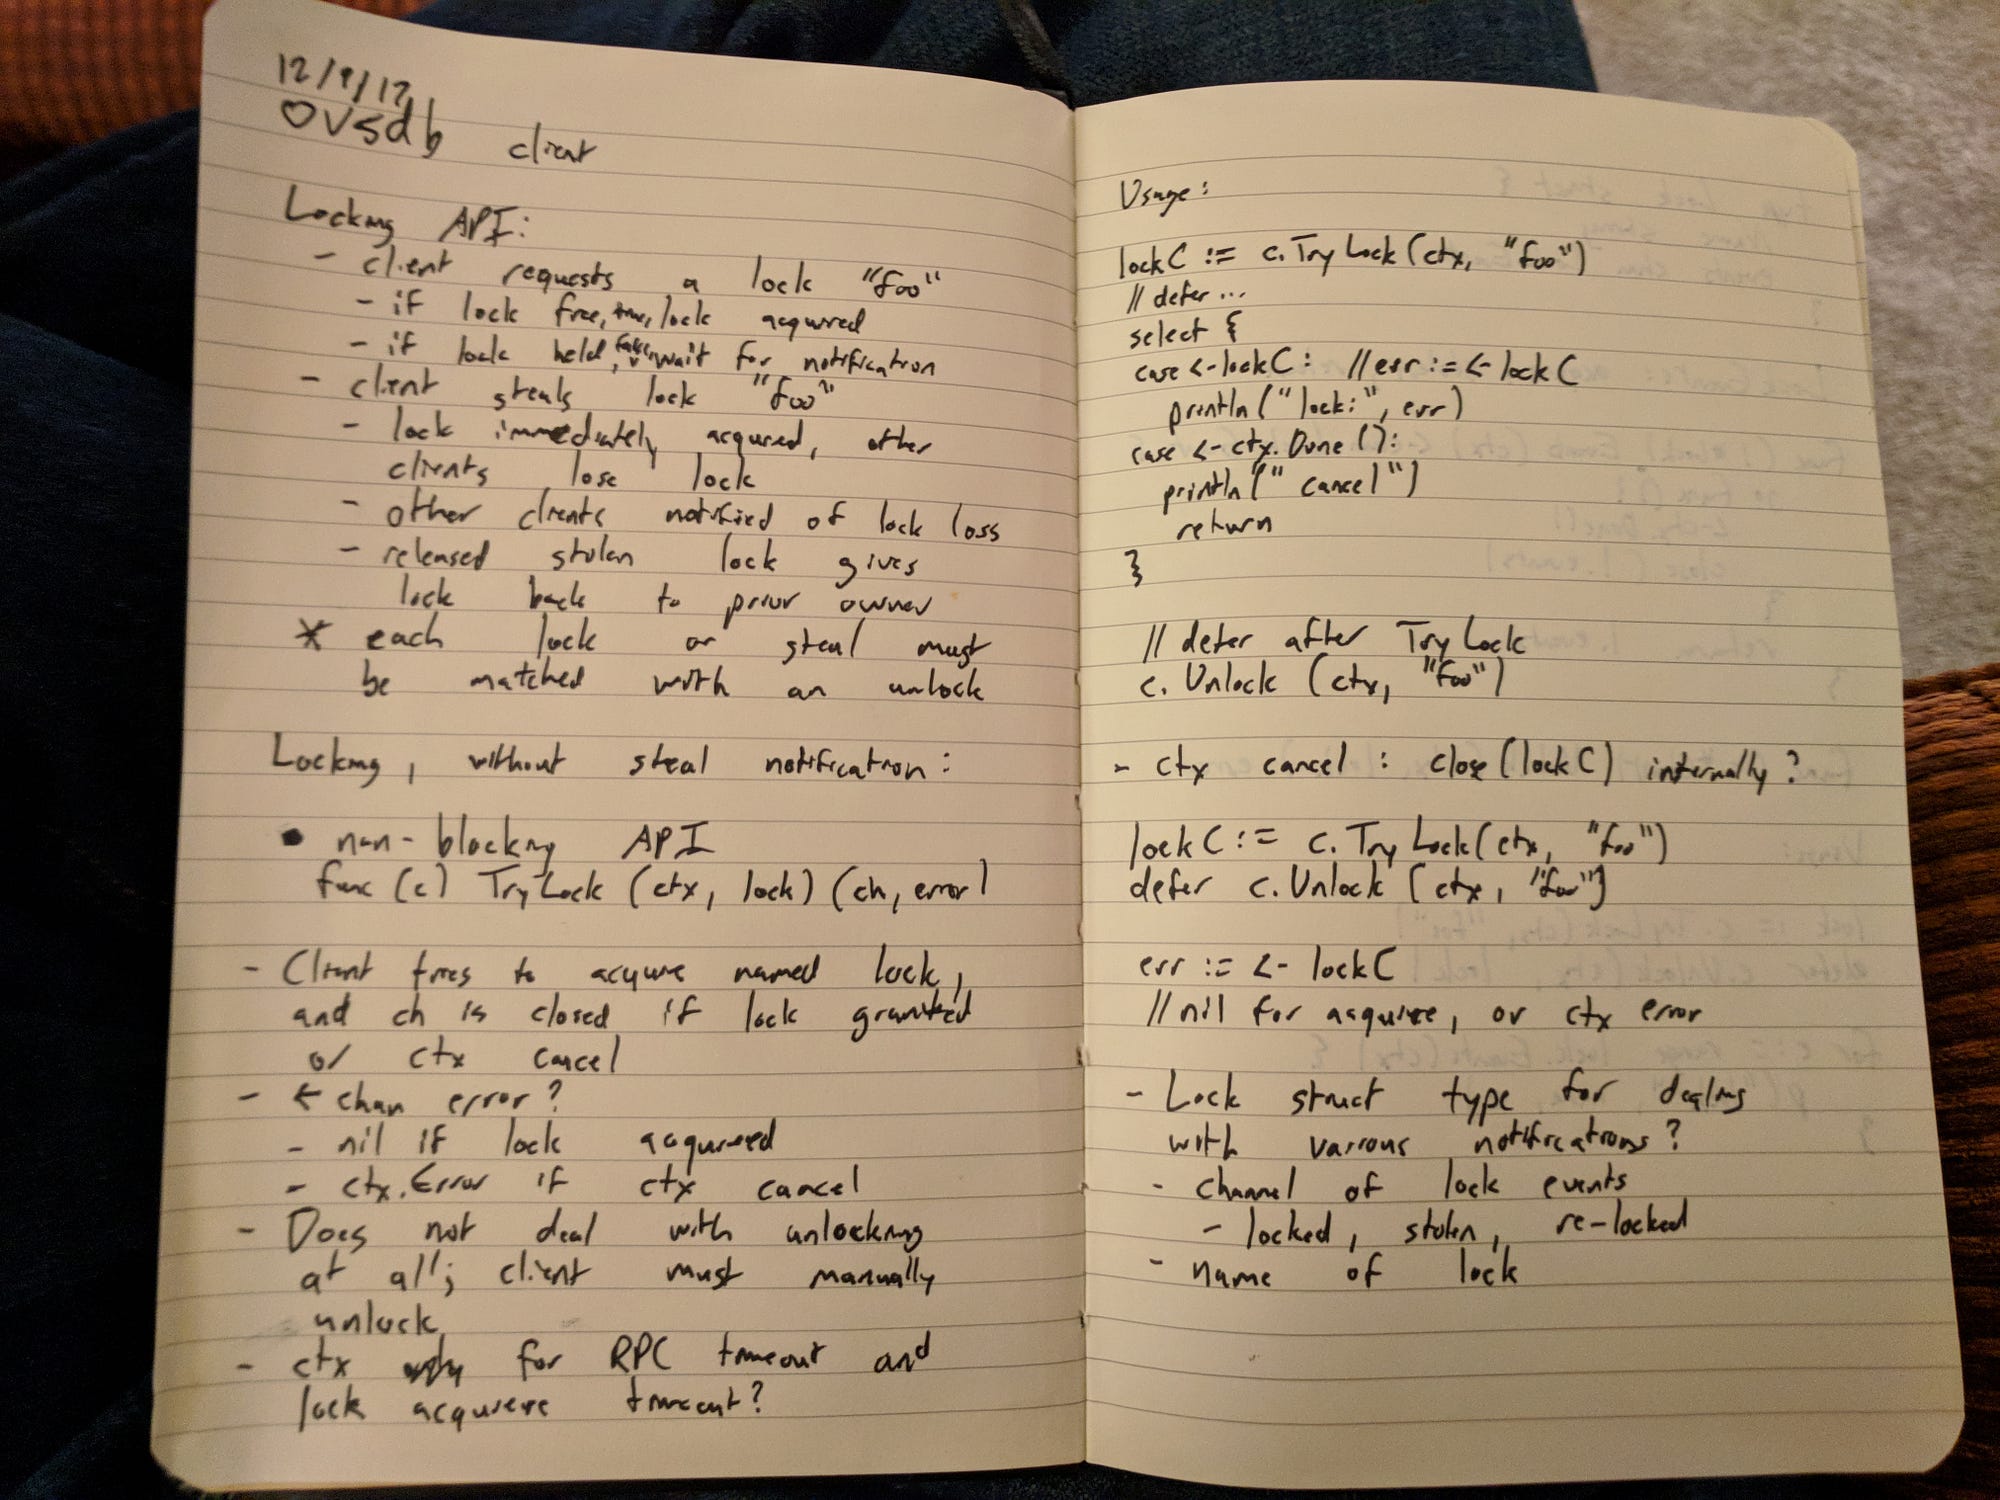 12/9/17
OVSdb client
Locking API:
- client requests a lock "foo"
- if lock free, true, lock acquired
- if lock held, false, wait for notification
- client steals lock "foo"
- lock immediately acquired, other
clients lose lock
- other clients notified of lock loss
- released stolen lock gives
lock back to prior owner
* each lock or steal must
be matched with an unlock
Locking, without steal notification:
• non-blocking API
func (c) TryLock (ctx, lock) (ch, error)
- Client tries to acquire named lock,
and ch is closed if lock granted
or ctx cancel
- ← chan error?
- nil if lock acquired
- ctx.Error if ctx cancel
- Does not deal with unlocking
at all; client must manually
unlock
- ctx for RPC timeout and
lock acquiere timeout?
Usage:
lockC := c.TryLock(ctx, "foo")
// defer...
select {
case <-lockC: //err := <- lockC
println("lock:", err)
case <- ctx.Done():
println("cancel")
return
}
// defer after TryLock
c.Unlock (ctx, "foo")
- ctx cancel: close(lockC) internally?
lockC := c.TryLock(ctx, "foo")
defer c.Unlock (ctx, "foo")
err := <- lockC
//nil for acquire, or ctx error
- Lock struct type for dealing
with various notifications?
- channel of lock events
- locked, stolen, re-locked
- name of lock